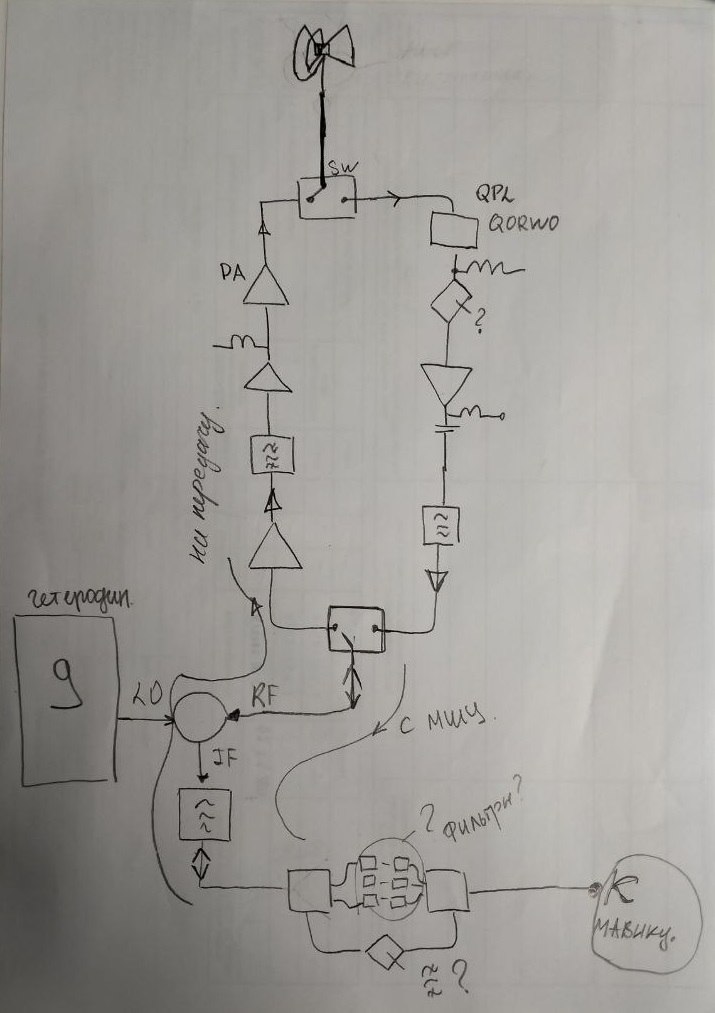 SW
QPL
QORWO
PA
?
на передачу.
гетеродин.
9
LO
RF
IF
с МШУ.
? Фильтры?
К
МАВИКУ.
?